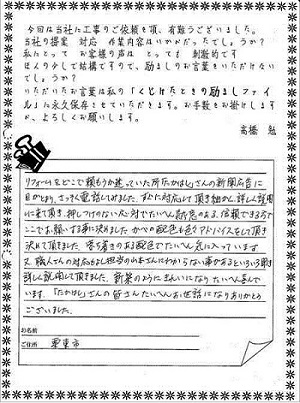 今回は当社に工事のご依頼を頂、有難うございました。
当社の提案 対応 作業内容はいかがだったでしょうか?
私にとって お客様の声は とっても 刺激的です
ほんの少しで結構ですので、励ましのお言葉をいただけないで
しょうか?
いただいたお言葉は私の「くじけたときの励ましファイ
ル」に永久保存とせていただきます。お手数をお掛けします
が、よろしくお願いします。
高橋 勉
リフォームをどこで頼もうか迷っていた所たかはしさんの新聞広告に
目がとまり、さっそく電話してみました。すぐに対応して頂き細かく、詳しく説明
に来て頂き、押しつけのない応対でたいへん好感のある、信頼できるので
ここでお願いする事に決めました。かべの配色も色々アドバイスをして頂き
決めて頂きました。落ち着きのある配色でたいへん気に入っています
又、職人さんの対応もよく担当の山本さんにわからない事があるといろいろ
詳しく説明して頂きました。新築のようにきれいになりたいへん喜んで
います。「たかはし」さんの皆さんたいへんお世話になりありがとう
ございました。
お名前
ご住所 栗東市